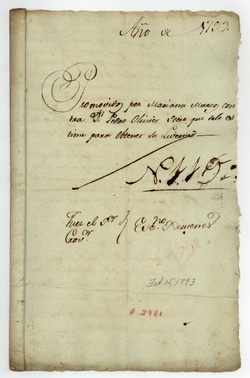 Año de 1793.
Promovidos por Mariana Marcos con
tra Dn. Pedro Olivier Sobre que se le es
time para obtener su Libertad
Juez el Sor.
Govr.
Esno. Ximenes
Feb 15, 1793
# 2981